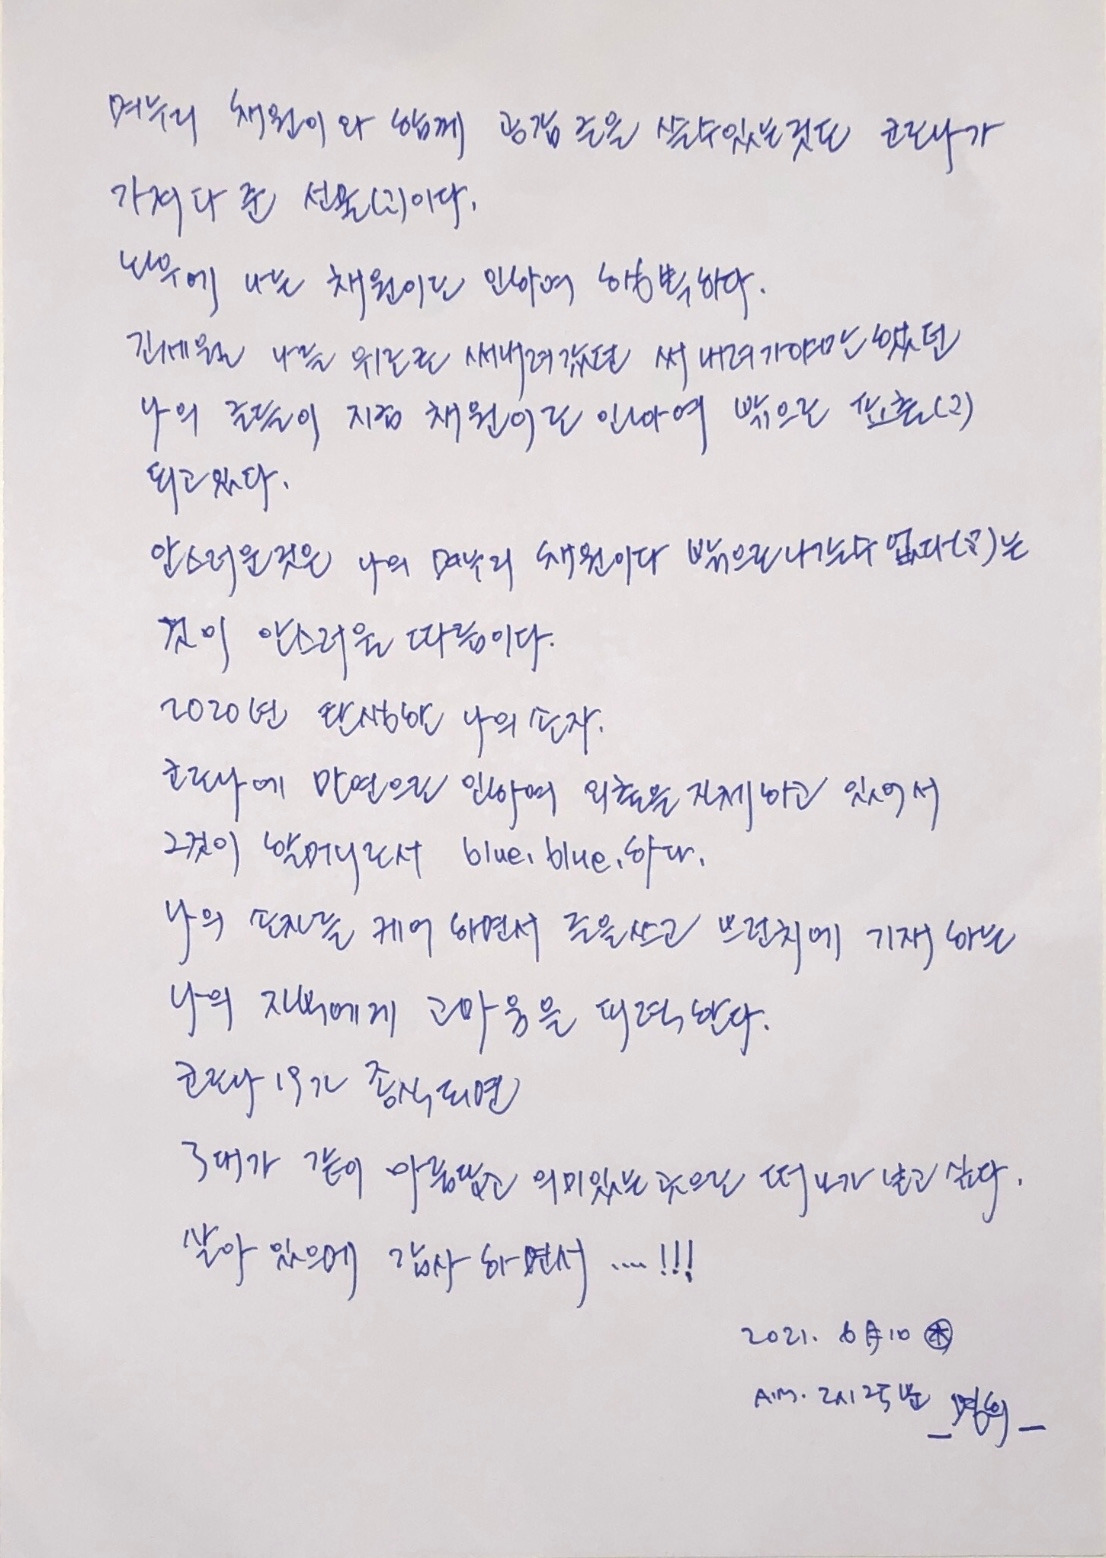 며누리 채원이와 함께 공감 글을 쓸수있는것도 코로나가
가져다 준 선물(?)이다.
노후에 나는 채원이로 인하여 행복하다.
긴세월 나를 위로로 써내려갔던 써 내려가야만 했던
나의 글들이 지금 채원이로 인하여 밖으로 표출(?)
되고있다.
안스러운것은 나의 며누리 채원이다 밖으로나갈수 없다(?)는
것이 안스러울 따름이다.
2020년 탄생한 나의 손자.
코로나에 만연으로 인하여 외출을 자제하고 있어서
그것이 할머니로서 blue, blue, 하다.
나의 손자를 케어 하면서 글을쓰고 브런치에 기재 하는
나의 자부에게 고마움을 피력한다.
코로나 19가 종식되면
3대가 같이 아름답고 의미있는 곳으로 떠나가 보고 싶다.
살아 있음에 감사 하면서 ....!!!
2021. 6月10 ㊍
A.M. 2시25분